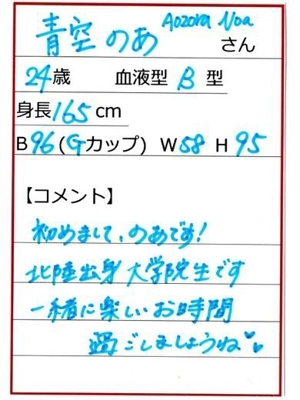 青空のあ Aozora Noa さん
24歳 血液型 B 型
身長165cm
B 96 (Gカップ) W58 H95
【コメント】
初めまして、のあです!
北陸出身大学院生です
一緒に楽しいお時間
過ごしましょうね♥♥